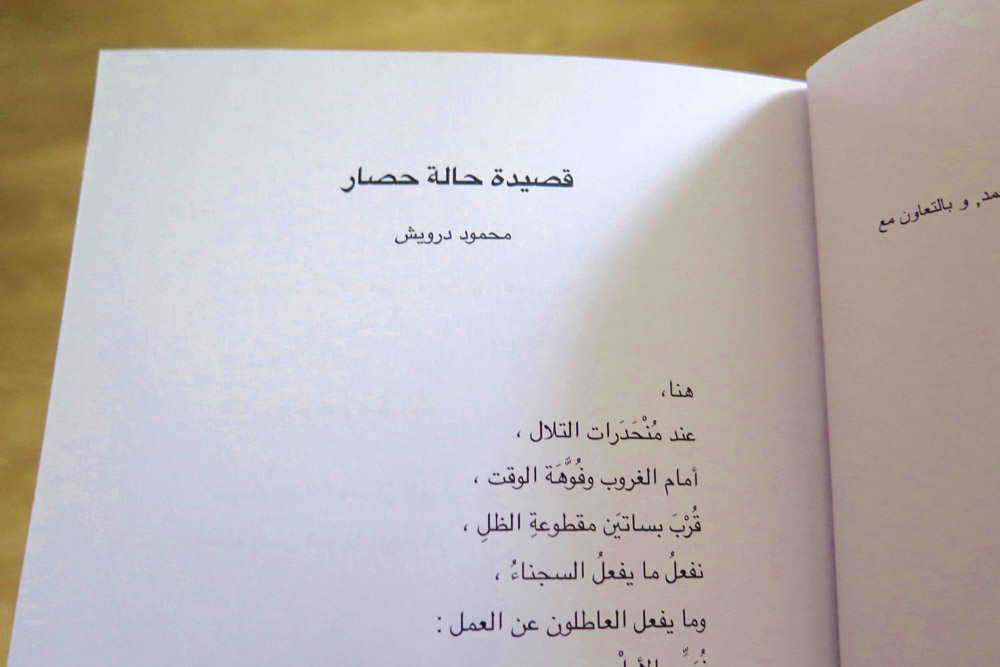 قصيدة حالة حصار
محمود درويش
هنا،
عند مُنْحَدَرات التلال ،
أمام الغروب وفُوَّهَة الوقت ،
قُرْبَ بساتيَن مقطوعةِ الظلِ ،
نفعلُ ما يفعلُ السجناءُ ،
وما يفعل العاطلون عن العمل :
و بالتعاون مع